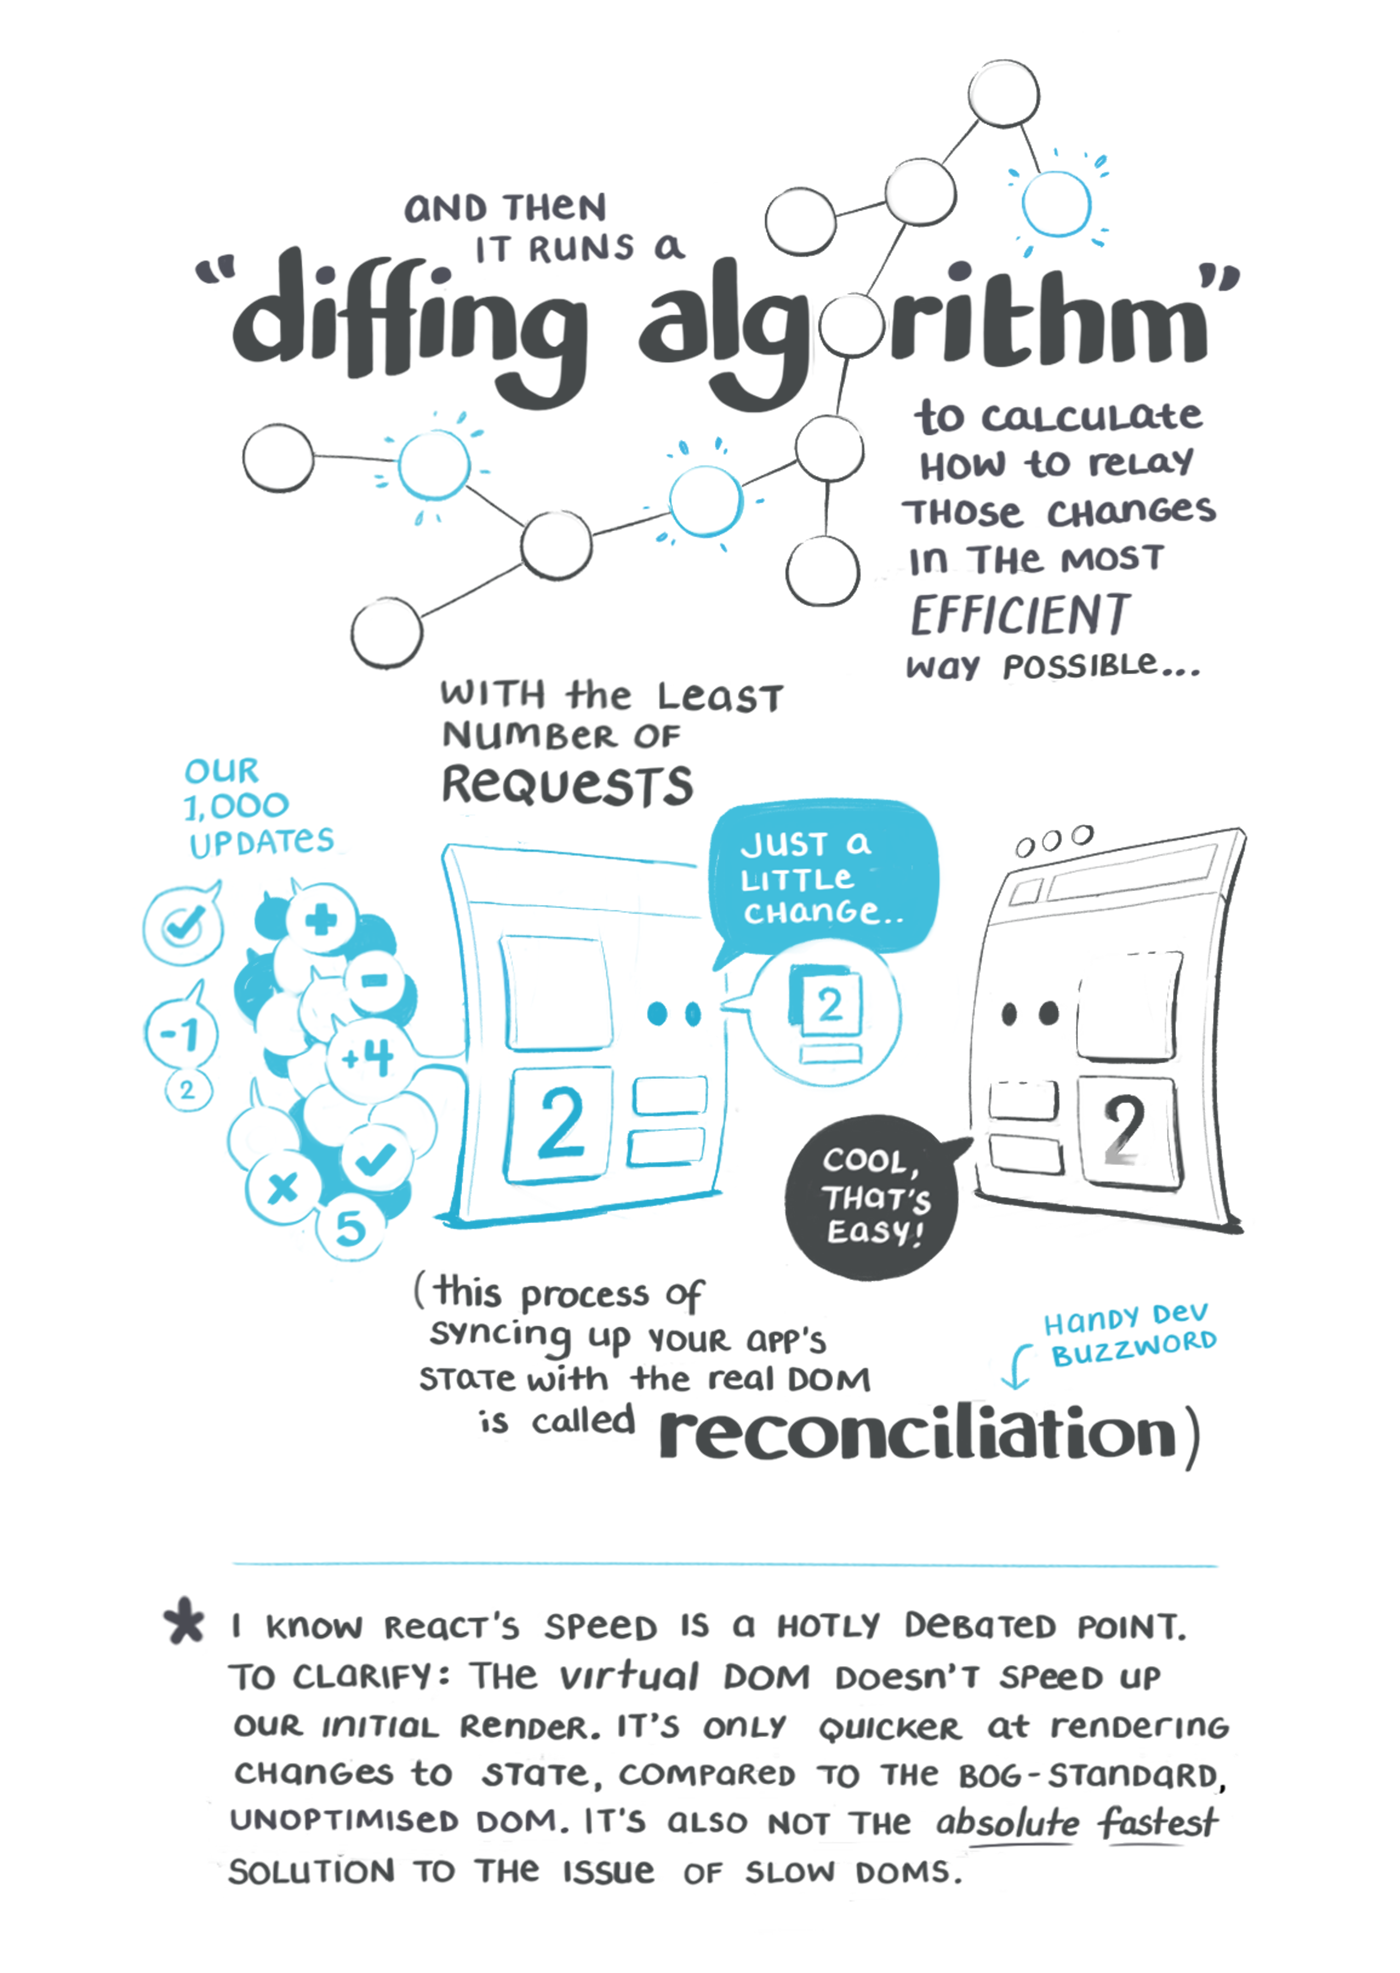 AND THEN
IT RUNS A
"diffing algorithm"
to CALCULATE
HOW to RELAY
THOSE CHANGES
IN THE MOST
EFFICIENT
WAY POSSIBLE...
WITH the LEAST
NUMBER OF
REQUESTS
OUR
1,000
UPDATES
JUST a
LITTLE
CHANGE..
-1
2
+
-
+4
x
5
2
2
2
COOL,
THAT'S
EASY!
(this process of
syncing up YOUR APP'S
STATE with the real DOM
is called reconciliation)
HANDY DEV
BUZZWORD
* I KNOW REACT'S SPEED IS A HOTLY DEBATED POINT.
TO CLARIFY: THE virtual DOM DOESN'T SPEED UP
OUR INITIAL RENDER. IT'S ONLY QUICKER at RENDERING
CHANGES to STATE, COMPARED TO THE BOG-STANDARD,
UNOPTIMISED DOM. IT'S ALSO NOT THE absolute fastest
SOLUTION TO THE ISSUE OF SLOW DOMS.